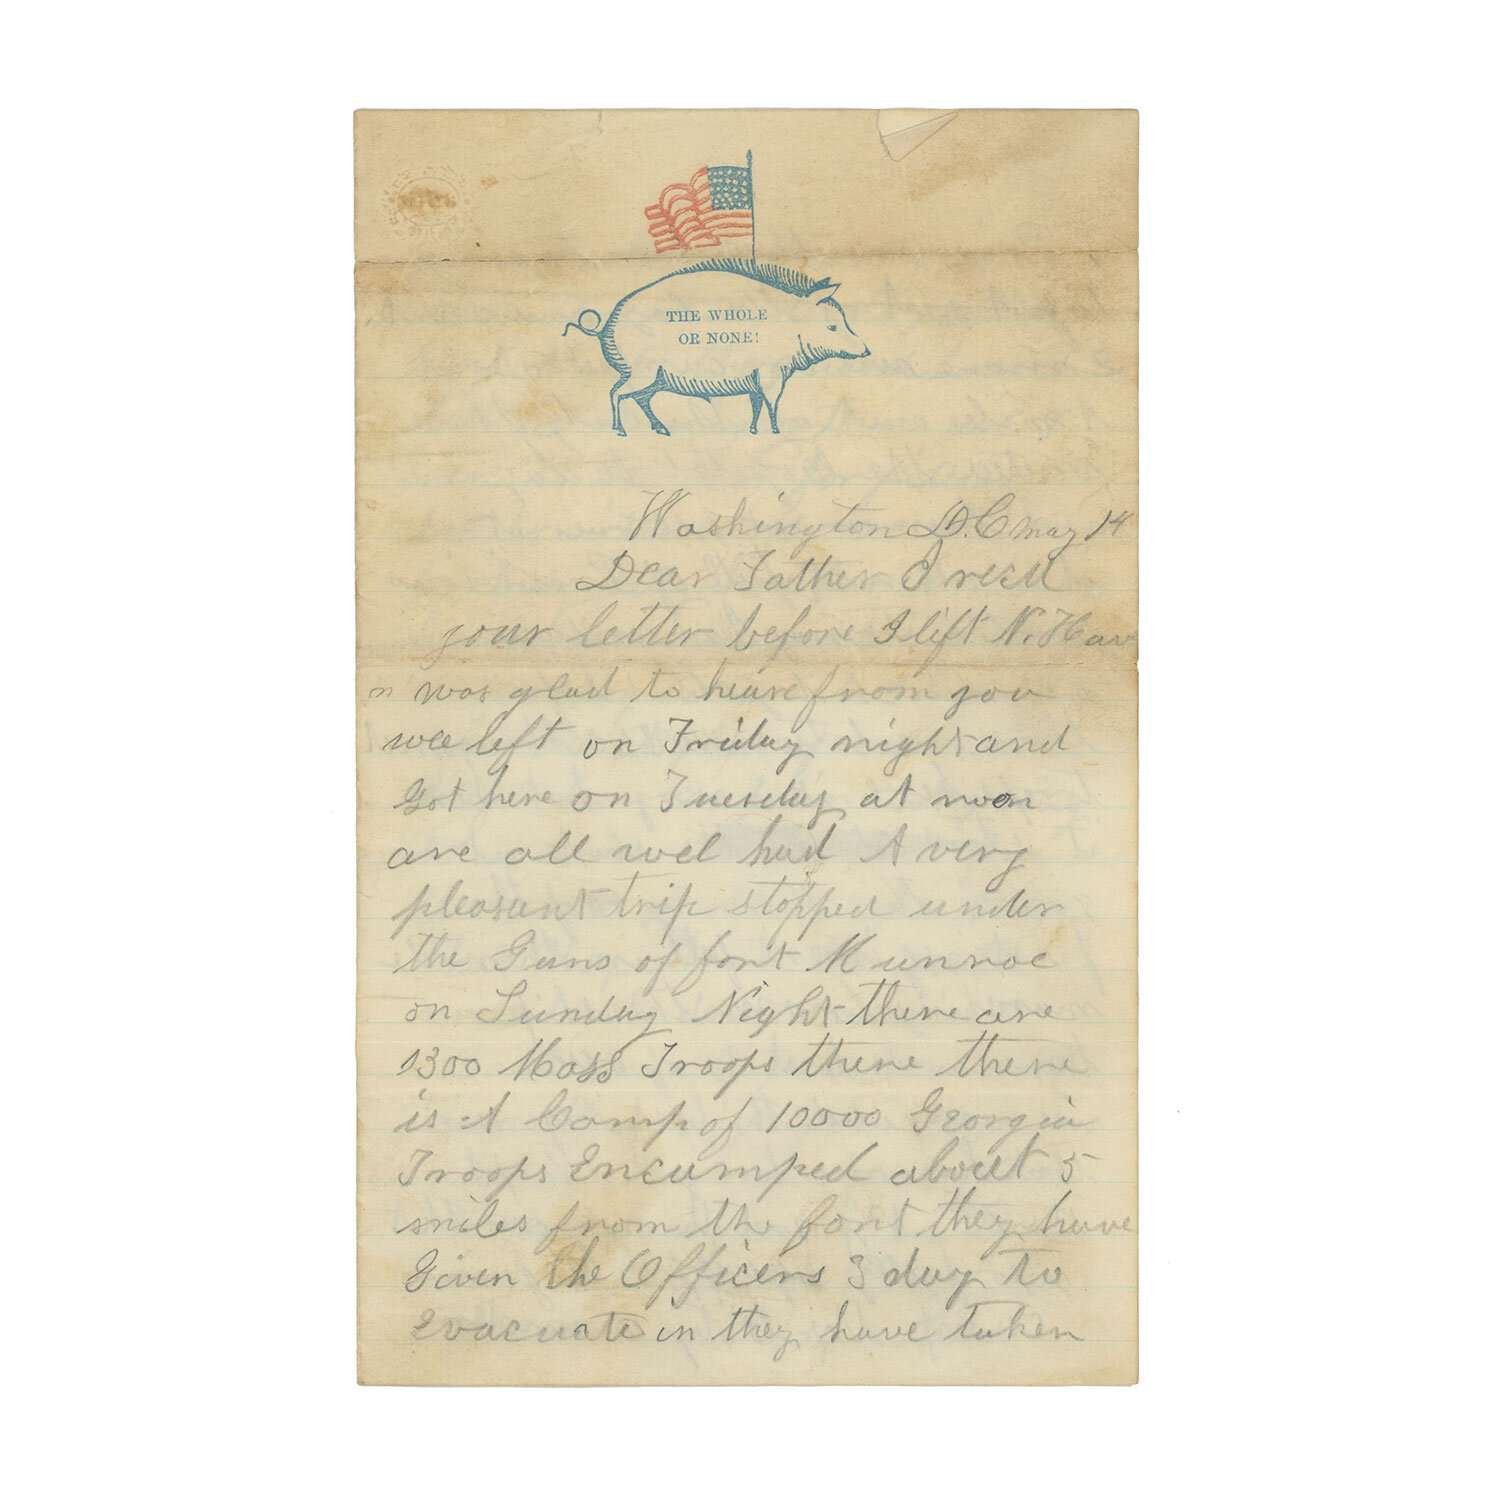 THE WHOLE
OR NONE!
Washington D.C may 14
Dear Father I recd
your letter before I lift N. Hav
n was glad to heare from you
wee left on Friday night and
Got here on Tuesday at noon
are all wel had A very
pleasant trip stopped under
the Guns of fort Munroe
on Sunday Night there are
1300 Mass Troops there there
is A Camp of 10000 Georgia
Troops Encamped about 5
miles from the fort they have
Given the Officers 3 day to
Evacuate in they have taken